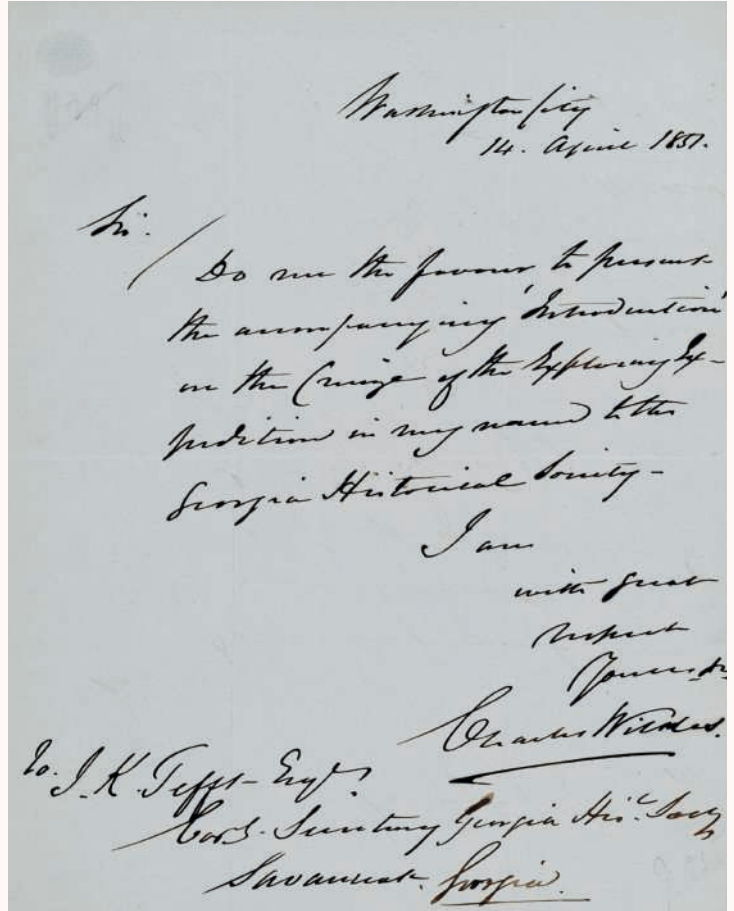 Washington City
14. April 1851.
Sir.
Do me the favour to present
the accompanying 'Introduction'
on the Cruize of the Exploring Ex-
pedition in my name to the
Georgia Historical Society-
I am
with great
respect
Yours &c
Charles Wilkes.
To. I. K. Tefft- Esqr.
Cors. Secretary Georgia Hisl. Socy
Savannah. Georgia.